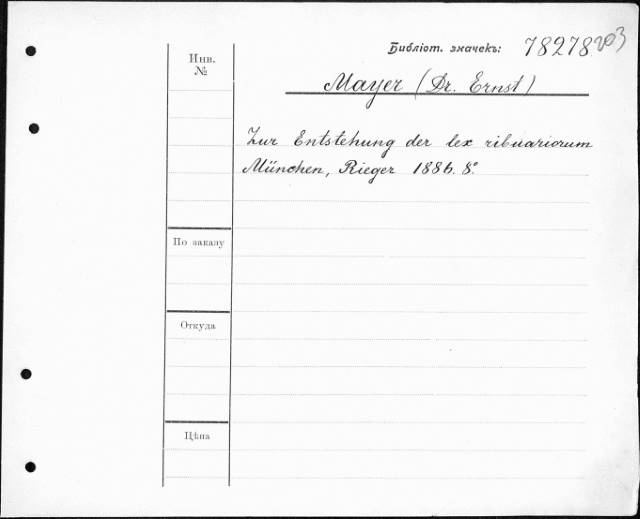 Библіот. значекъ: 78278
Инв.
№
Mayer (Dr. Ernst)
Zur Entstehung der lex ribuariorum
München, Rieger 1886. 8º.
По заказу
Откуда
Цѣна